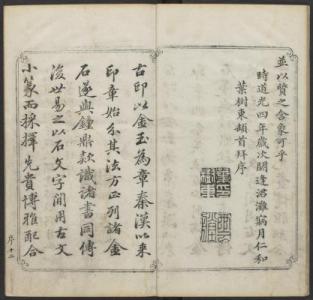 並以贊之含豪可乎
時道光四年歲次閼逢涒灘窉月仁和
葉樹東頓首拜序
古印以金玉為章秦漢以來
印章始分其法方正列諸金
石遂與鐘鼎款識諸書同傳
後世易之以石文字間用古文
小篆而採擇先貴博雅配合
序十二